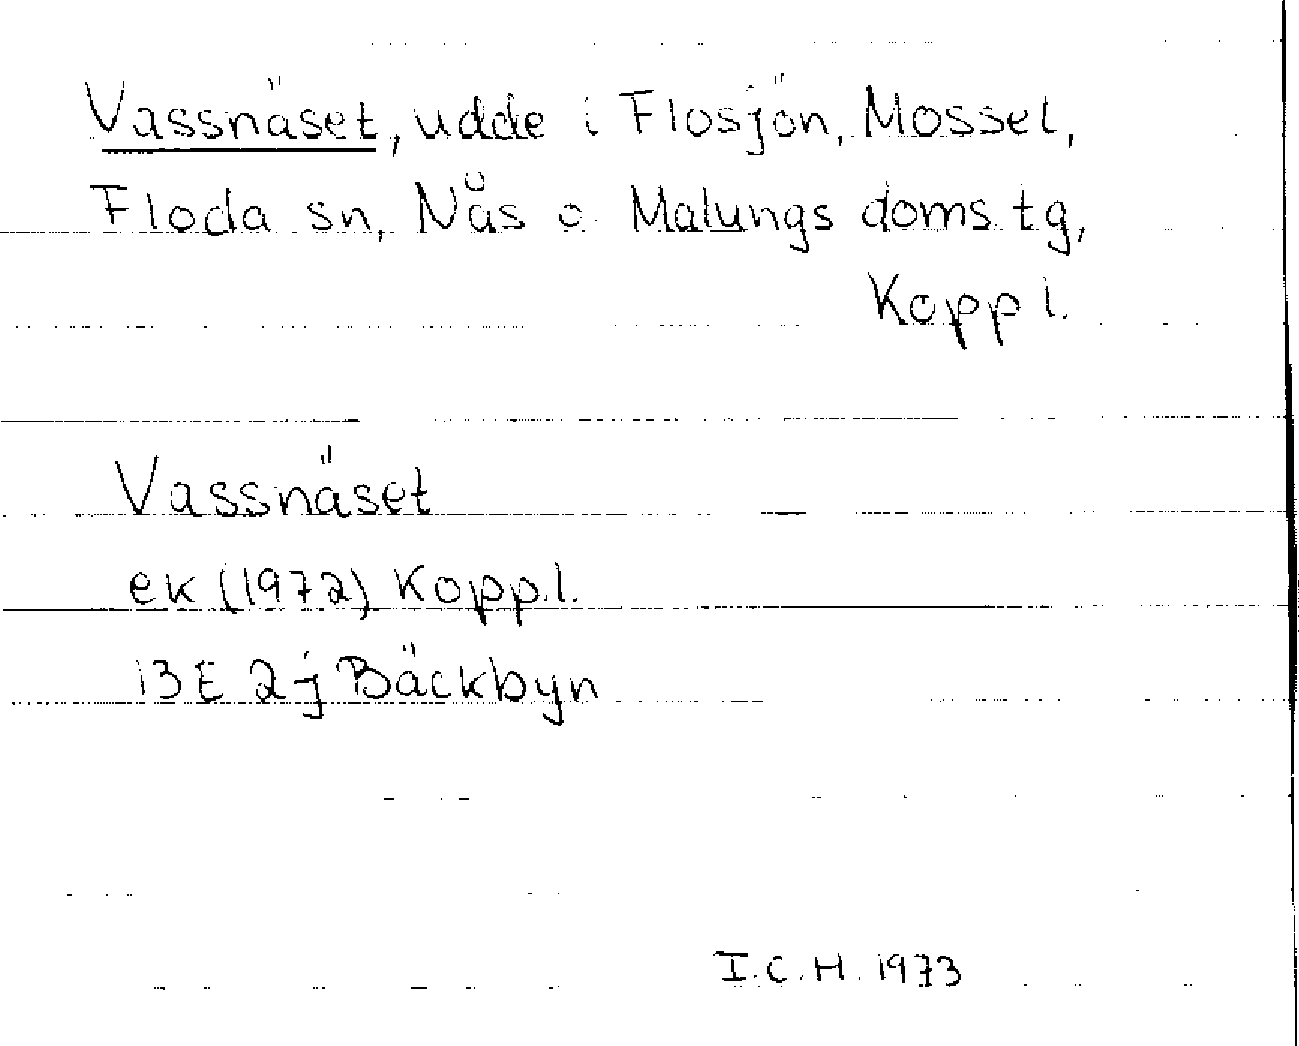 Vassnäset, udde i Flosjön, Mossel,
Floda sn, Nås o Malungs doms.tg,
Kopp l.
Vassnäset
ek (1972) Kopp.l.
13E 2j Bäckbyn
I.C.H. 1973